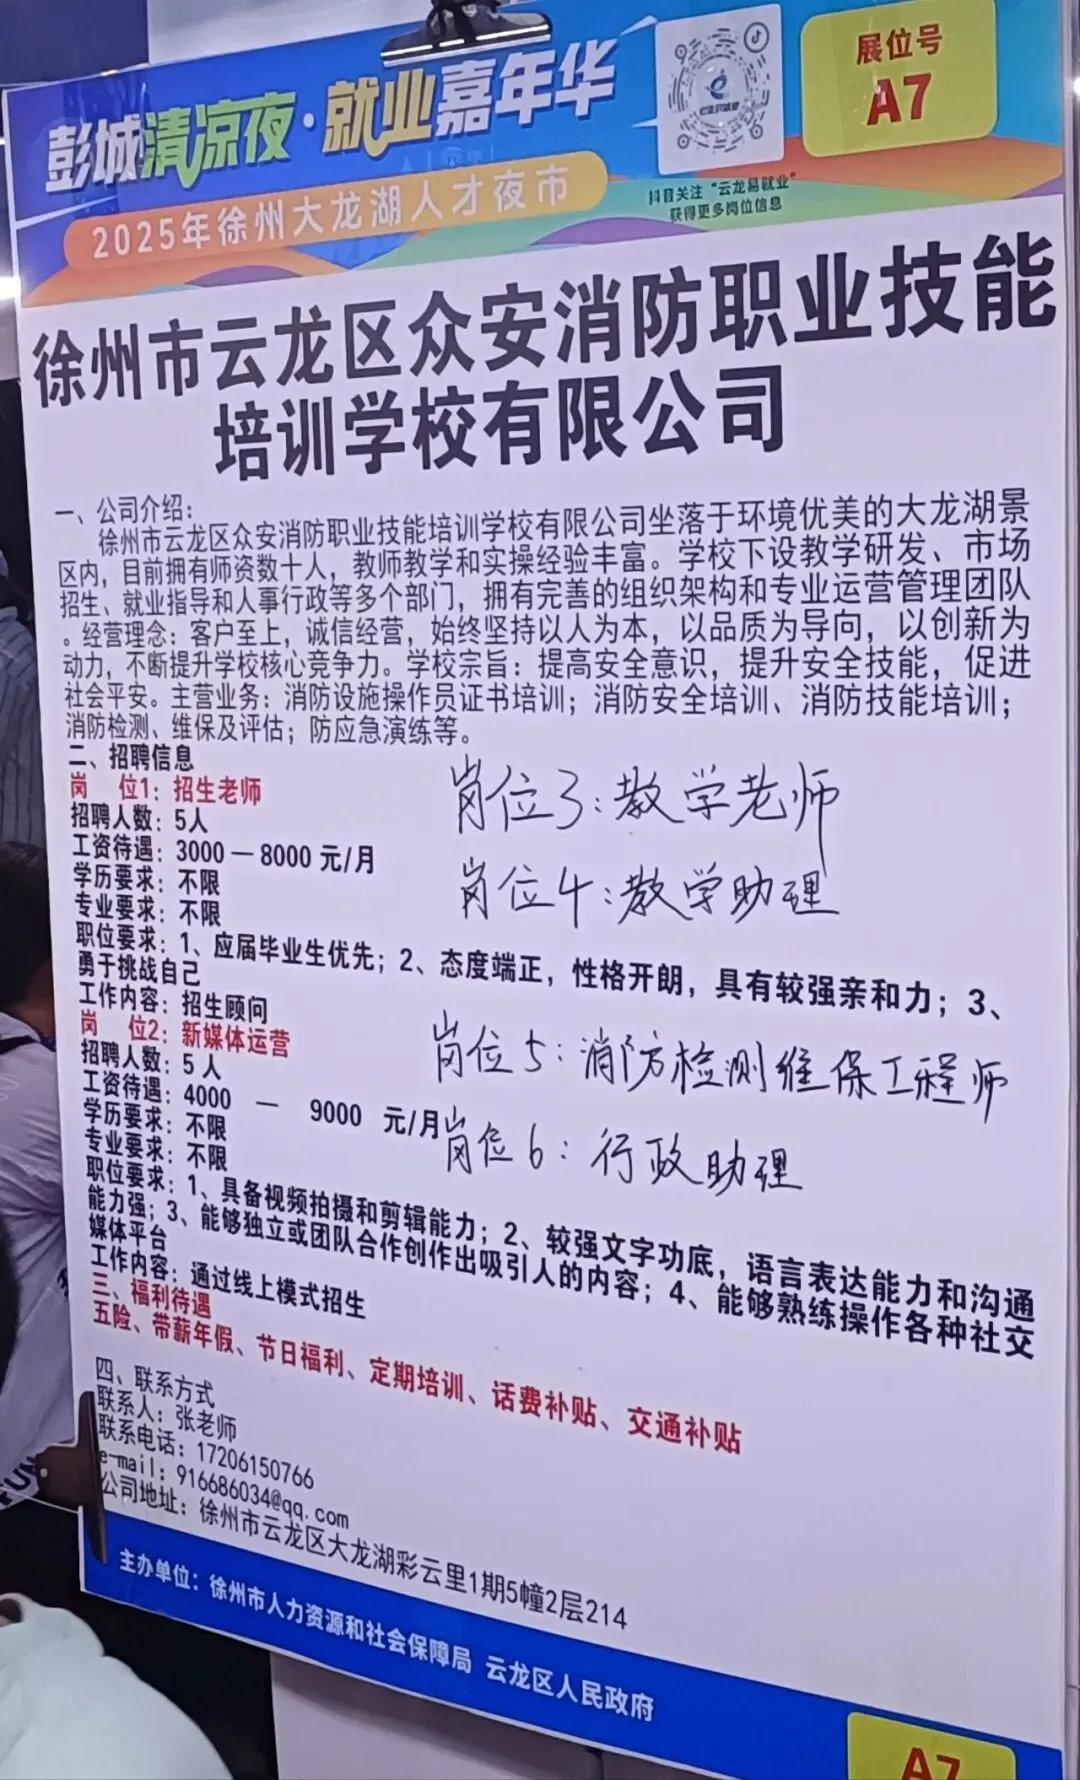 彭城清凉夜·就业嘉年华
2025年徐州大龙湖人才夜市
抖音关注“云龙易就业”
获得更多岗位信息
展位号
A7
徐州市云龙区众安消防职业技能
培训学校有限公司
一、公司介绍：
徐州市云龙区众安消防职业技能培训学校有限公司坐落于环境优美的大龙湖景
区内，目前拥有师资数十人，教师教学和实操经验丰富。学校下设教学研发、市场
招生、就业指导和人事行政等多个部门，拥有完善的组织架构和专业运营管理团队
。经营理念：客户至上，诚信经营，始终坚持以人为本，以品质为导向，以创新为
动力，不断提升学校核心竞争力。学校宗旨：提高安全意识，提升安全技能，促进
社会平安。主营业务：消防设施操作员证书培训；消防安全培训、消防技能培训；
消防检测、维保及评估；防应急演练等。
二、招聘信息
岗 位1：招生老师
招聘人数：5人
工资待遇：3000 — 8000 元/月
学历要求：不限
专业要求：不限
岗位3：教学老师
岗位4：教学助理
职位要求：1、应届毕业生优先；2、态度端正，性格开朗，具有较强亲和力；3、
勇于挑战自己
工作内容：招生顾问
岗 位2：新媒体运营
招聘人数：5 人
工资待遇：4000 — 9000 元/月
学历要求：不限
专业要求：不限
岗位5：消防检测维保工程师
岗位6：行政助理
职位要求：1、具备视频拍摄和剪辑能力；2、较强文字功底，语言表达能力和沟通
能力强；3、能够独立或团队合作创作出吸引人的内容；4、能够熟练操作各种社交
媒体平台
工作内容：通过线上模式招生
三、福利待遇
五险、带薪年假、节日福利、定期培训、话费补贴、交通补贴
四、联系方式
联系人：张老师
联系电话：17206150766
e-mail：916686034@qq.com
公司地址：徐州市云龙区大龙湖彩云里1期5幢2层214
主办单位：徐州市人力资源和社会保障局 云龙区人民政府
A7